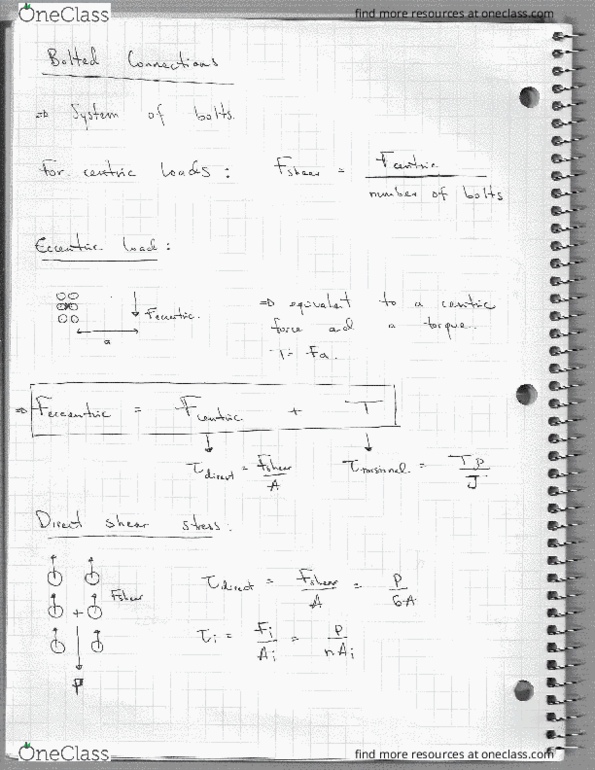 OneClass
find more resources at oneclass.com
Bolted Connections
⇒ System of bolts.
For centric loads : F_shear = F_centric / number of bolts
Eccentric load :
F_eccentric.
a
⇒ equivalent to a centric
force and a torque.
T = Fa.
⇒ F_eccentric = F_centric + T
τ_direct = F_shear / A
τ_torsional = Tρ / J
Direct shear stress :
F_shear
P
τ_direct = F_shear / A = P / 6A
τ_i = F_i / A_i = P / nA_i
OneClass
find more resources at oneclass.com